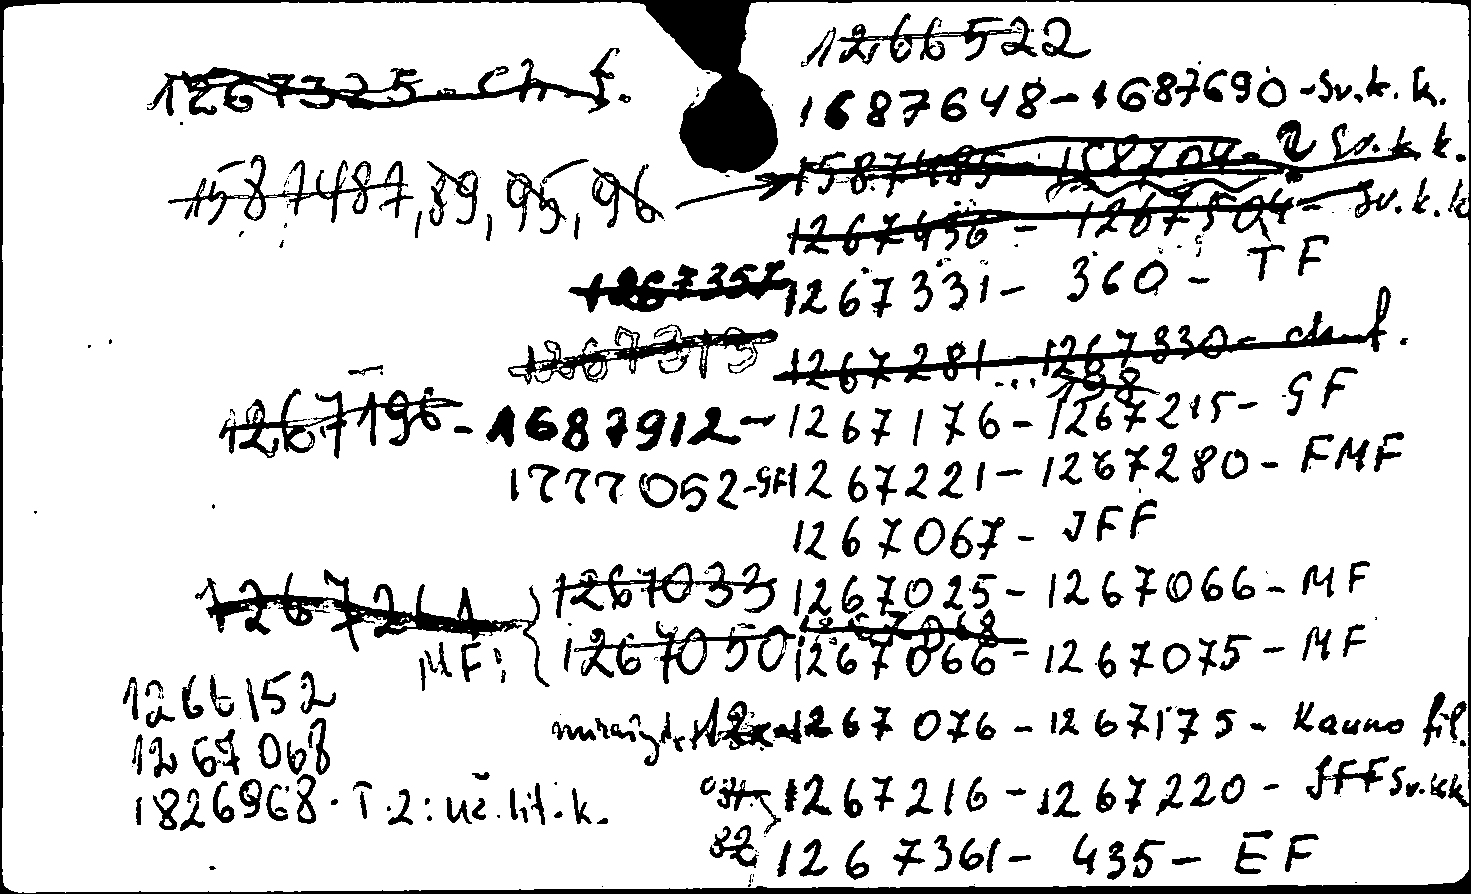 1266522
1267325 - ch. f.
1687648 - 1687690 - Sv.k.k.
1587487, 89, 95, 96
1587485 - 158704 - 2 Sv.k.k.
1267436 - 1267504 - Sv.k.k
1267357
1267331 - 360 - TF
1267313
1267281 - 1267330 - ch. f.
198
1267196 - 1687912 - 1267176 - 1267215 - GF
1777052 - GF 1267221 - 1267280 - FMF
1267067 - JFF
1267261
MF;
1267033 1267025 - 1267066 - MF
1267068
1267050 1267066 - 1267075 - MF
1266152
1267068
1267076 - 1267175 - Kauno fil.
1826968. T. 2: už. lit. k.
1267216 - 1267220 - JFF Sv.kk
82
1267361 - 435 - EF